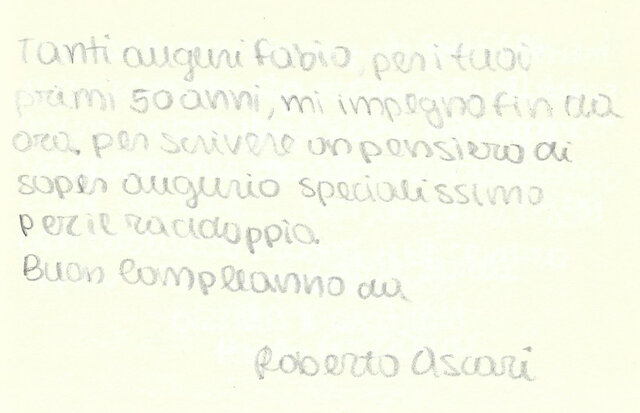 Tanti auguri fabio, per i tuoi
primi 50 anni, mi impegno fin da
ora per scrivere un pensiero di
super augurio specialissimo
per il raddoppio.
Buon Compleanno da
Roberto Ascari